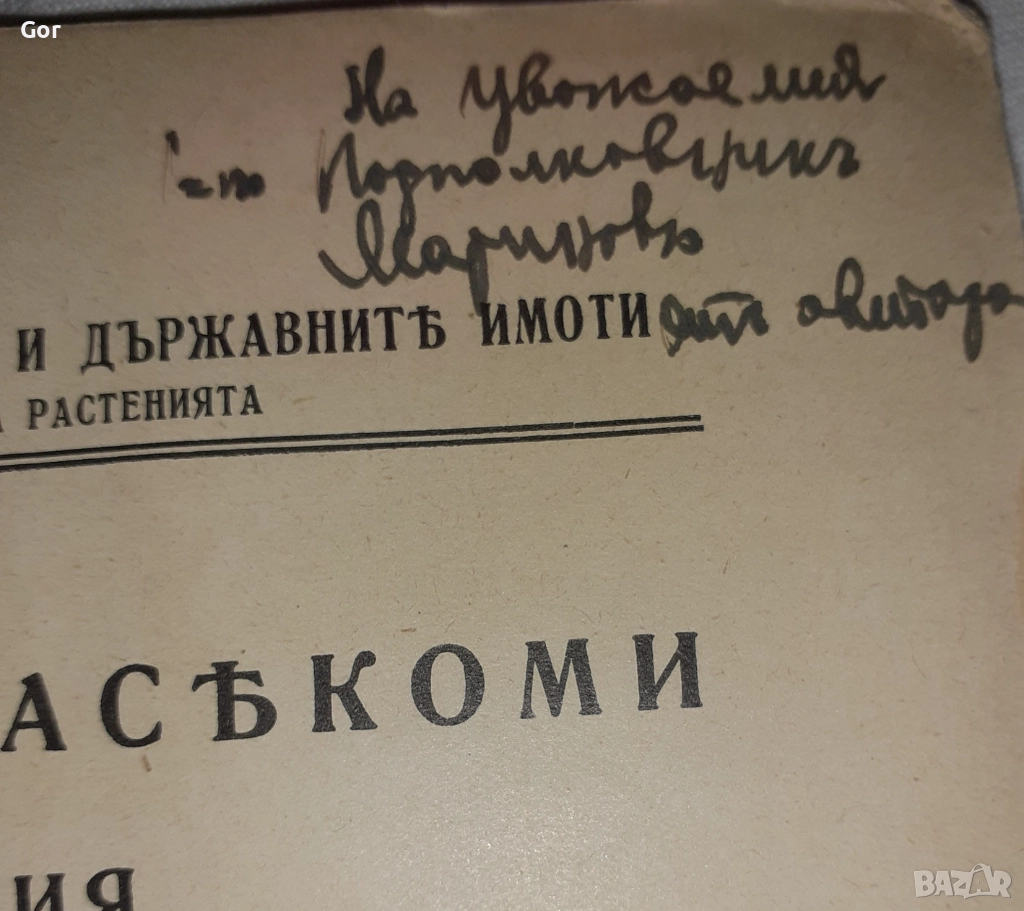 Gor
На уважаемия
г-нъ Подполковникъ
Мариновъ
отъ автора
И ДЪРЖАВНИТѢ ИМОТИ
РАСТЕНИЯТА
АСѢКОМИ
ИЯ
BAZAR